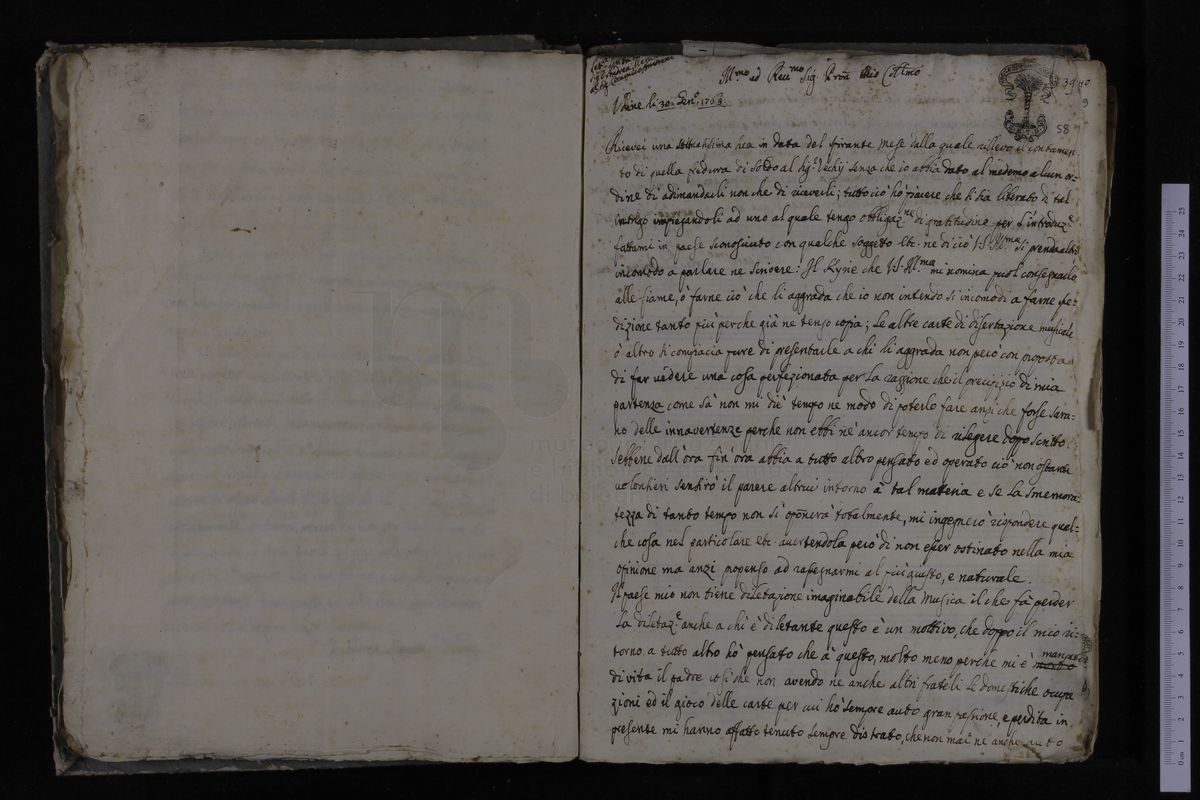 Ill.mo ed Rev.mo Sig. Pron mio Coll.mo
Udine li 30. Gen.o 1763
58
Ricevei una stimatissima sua in data del spirante mese dalla quale rillevo il contamen
to di quella sudura di soldo al Sig.r Vechij senza che io abbia dato al medemo alcun or=
dine di adimandarli non che di riceverli; tutto ciò hò piacere che si sia liberato di tal
intrigo impiegandoli ad uno al quale tengo obbligaz.ne di gratitudine per l'introduz.e
fattami in paese sconosciuto con qualche soggetto etc. ne di ciò V.S. Ill.ma si prenda altro
incomodo a parlare ne scrivere: Il Kyrie che V.S. Ill.ma mi nomina puol consegnarlo
alle fiame, ò farne ciò che li aggrada che io non intendo si incomodi a farne spe=
dizione tanto più perche già ne tengo copia; Le altre carte di disertazione musicale
ò altro si compiacia pure di presentarle a chi li aggrada non però con
di far vedere una cosa perfezionata per la raggione che il precipizio di mia
partenza come sà non mi diè tempo ne modo di poterlo fare anzi che forse sara=
no delle innavertenze perche non ebbi nè ancor tempo di rilegere dopo scritto.
Sebbene dall'ora fin'ora abbia a tutto altro pensato ed operato ciò non ostante
volontieri sentirò il parere altrui intorno à tal materia e se la smemora=
tezza di tanto tempo non si oponerà totalmente, mi ingegnerò rispondere qual=
che cosa nel particolare etc. avertendola però di non esser ostinato nella mia
opinione ma anzi propenso ad rasegnarmi al più giusto, e naturale.
Il paese mio non tiene diletazione imaginabile della Musica il che fà perder
la diletaz.e anche a chi è diletante questo è un mottivo, che doppo il mio ri=
torno a tutto altro hò pensato che à questo, molto meno perche mi è
di vita il padre così che non avendo ne anche altri frateli le domestiche ocupa
zioni ed il gioco delle carte per cui hò sempre auto gran passione, e perdita in
presente mi hanno affatto tenuto sempre distrato, che non mai ne anche auto
museo
di bolo